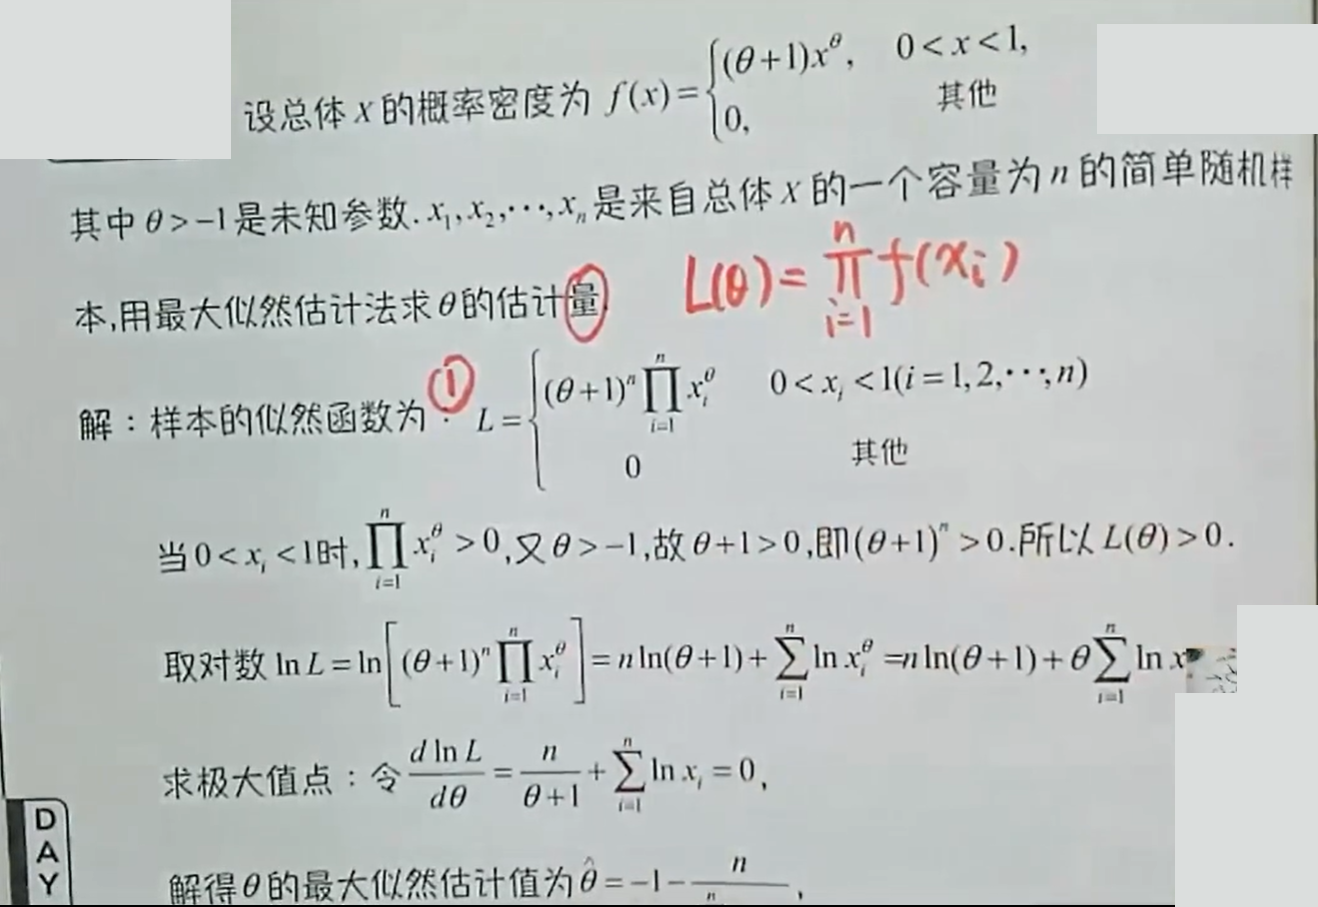 设总体X的概率密度为 f(x)={(θ+1)x^θ, 0<x<1,
0, 其他
其中θ>-1是未知参数.x₁,x₂,⋯,xₙ是来自总体X的一个容量为n的简单随机样
本,用最大似然估计法求θ的估计量.
L(θ)=∏_{i=1}^{n} f(x_i)
解：样本的似然函数为：① L={(θ+1)^n ∏_{i=1}^{n} x_i^θ 0<x_i<1(i=1,2,⋯,n)
0 其他
当0<x_i<1时,∏_{i=1}^{n} x_i^θ>0,又θ>-1,故θ+1>0,即(θ+1)^n>0.所以L(θ)>0.
取对数 ln L=ln[(θ+1)^n ∏_{i=1}^{n} x_i^θ]=n ln(θ+1)+∑_{i=1}^{n} ln x_i^θ=n ln(θ+1)+θ∑_{i=1}^{n} ln x
求极大值点：令 d ln L/dθ=n/(θ+1)+∑_{i=1}^{n} ln x_i=0,
解得θ的最大似然估计值为θ̂=-1-n/ n ,
DAY